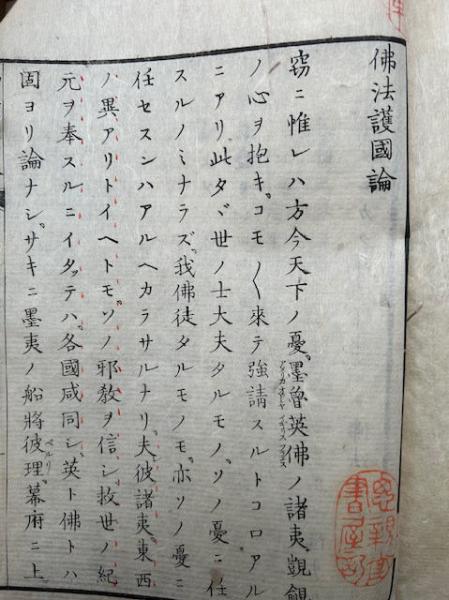 佛法護國論
竊ニ惟レハ方今天下ノ憂墨魯英佛ノ諸夷覬覦
アメリカ オロシヤ イギリス フランス
ノ心ヲ抱キコモ〱來テ強請スルトコロアル
ニアリ此タヾ世ノ士大夫タルモノヽソノ憂ニ任
スルノミナラズ我佛徒タルモノモ亦ソノ憂ニ
任セスンハアルヘカラサルナリ夫彼諸夷東西
ノ異アリトイヘトモソノ邪教ヲ信シ救世ノ紀
元ヲ奉スルニイタッテハ各國咸同シ英ト佛トハ
固ヨリ論ナシサキニ墨夷ノ船將彼理幕府ニ上
ペルリ